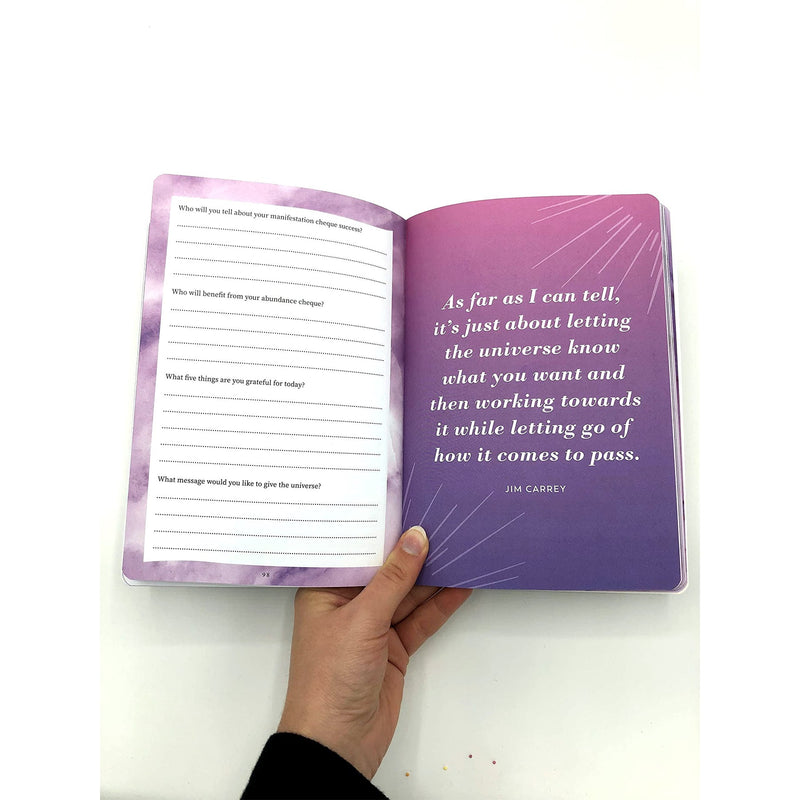 Who will you tell about your manifestation cheque success?
Who will benefit from your abundance cheque?
What five things are you grateful for today?
What message would you like to give the universe?
98
As far as I can tell,
it's just about letting
the universe know
what you want and
then working towards
it while letting go of
how it comes to pass.
JIM CARREY